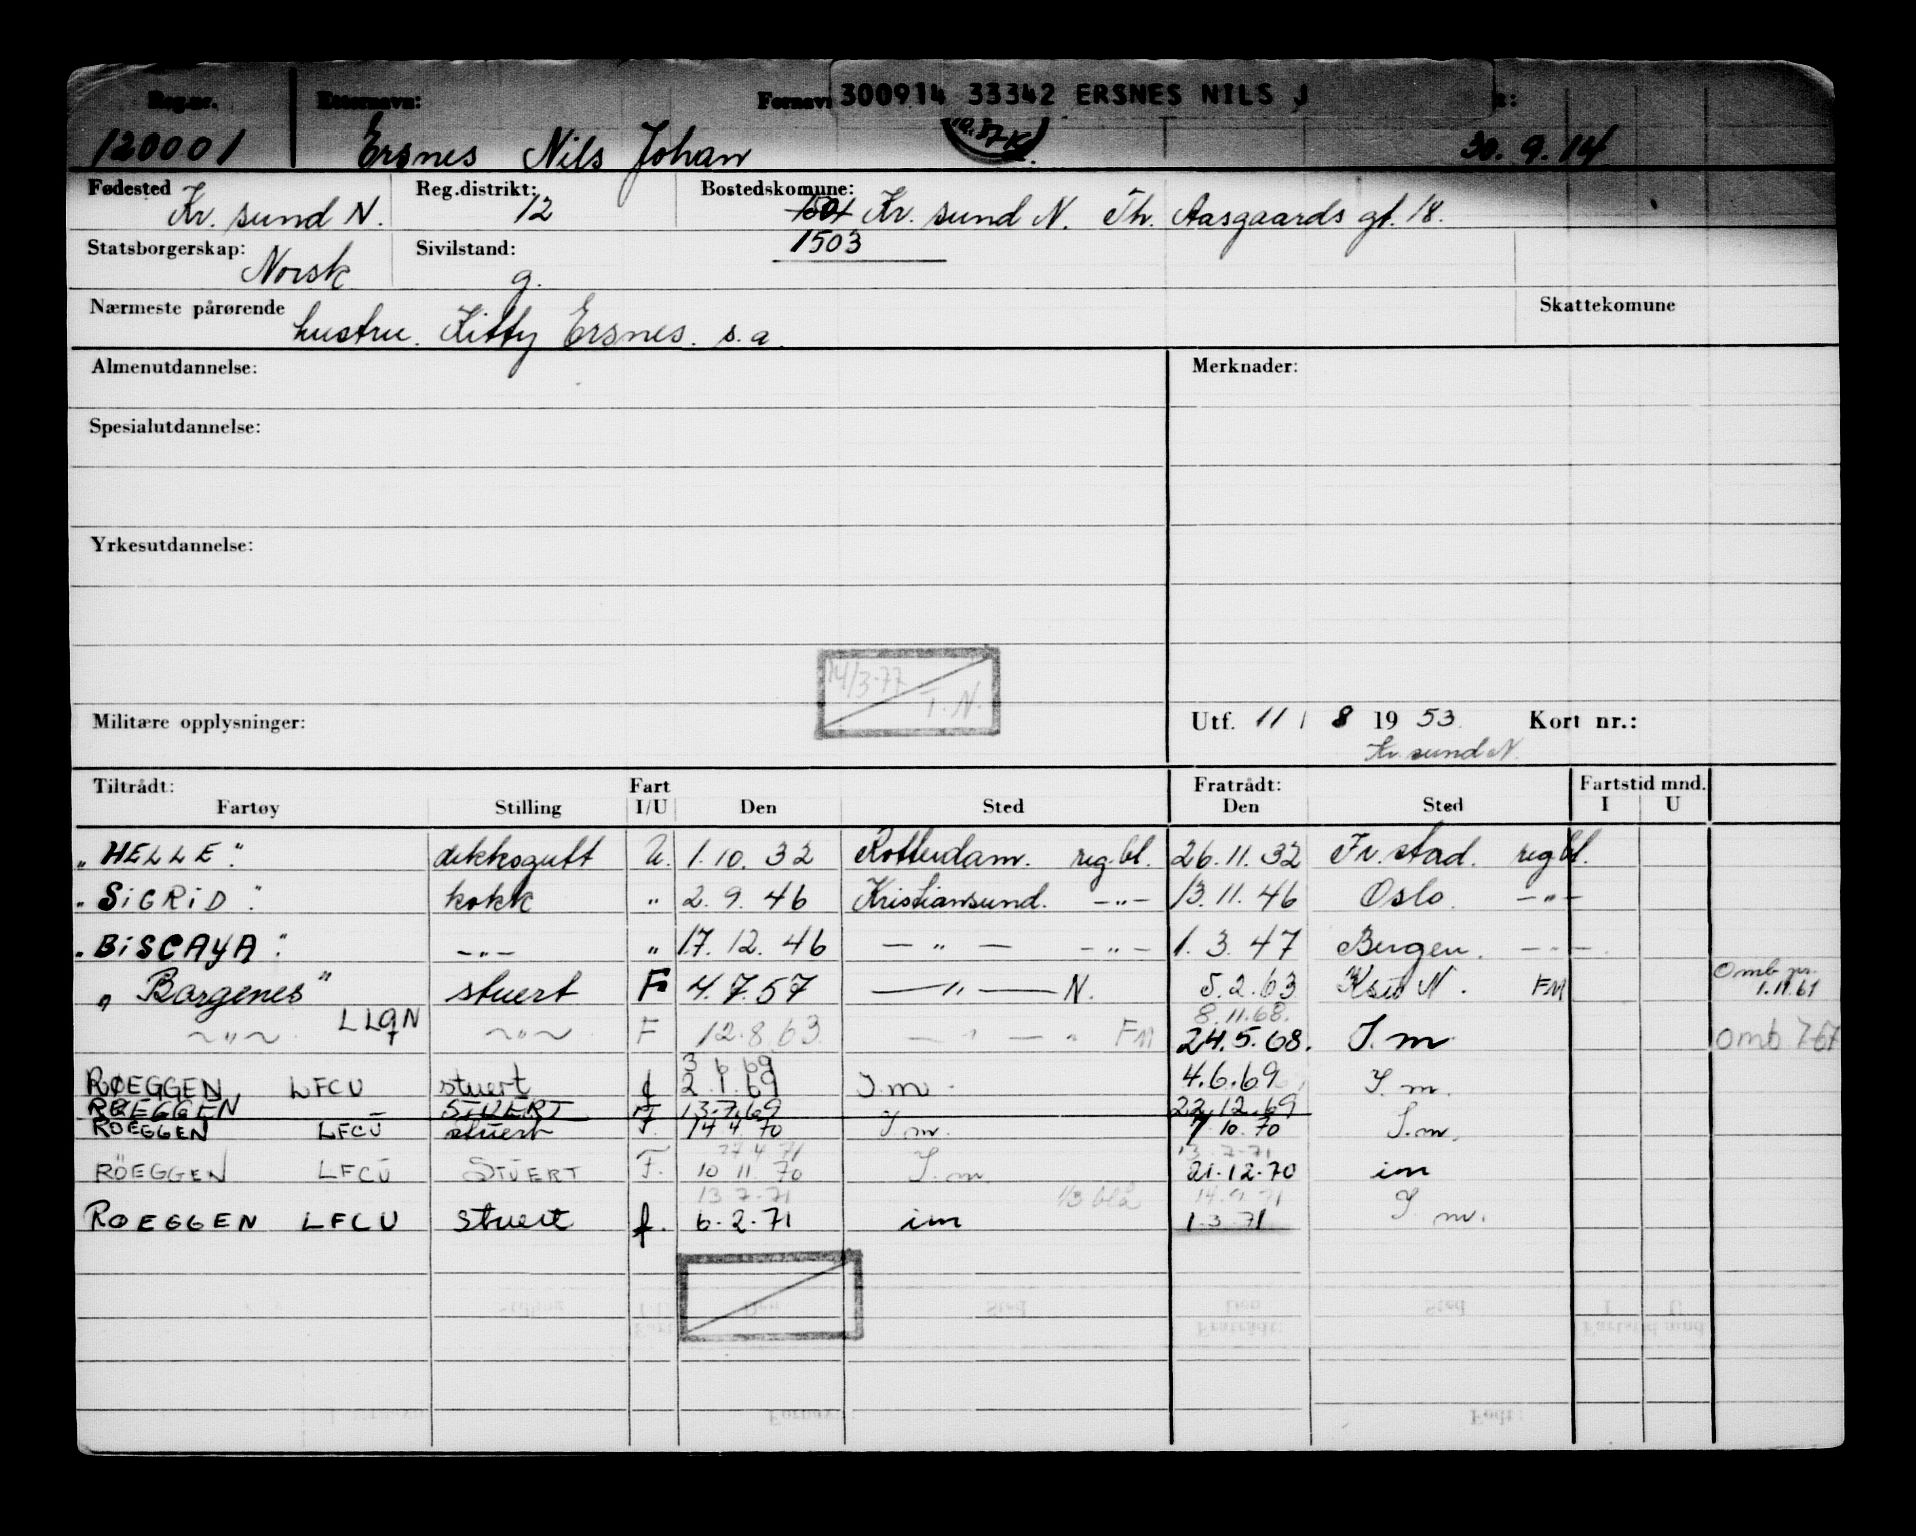 Reg.nr. Etternavn: Fornavn 300914 33342 ERSNES NILS J
120001 Ersnes Nils Johan 30.9.14
Fødested Reg.distrikt: Bostedskomune:
Kr. sund N. 12 1501 Kr. sund N. Th. Aasgaards gt. 18.
Statsborgerskap: Sivilstand: 1503
Norsk g.
Nærmeste pårørende Skattekomune
hustru. Kitty Ersnes. s.a.
Almenutdannelse: Merknader:
Spesialutdannelse:
Yrkesutdannelse:
14/3-77
T.N.
Militære opplysninger: Utf. 11 / 8 19 53 Kort nr.:
Kr. sund N.
Tiltrådt: Fart Fratrådt: Fartstid mnd.
Fartøy Stilling I/U Den Sted Den Sted I U
"HELLE" dekksgutt U. 1.10.32 Rotterdam. reg.bl. 26.11.32 Fr.stad. reg.bl.
"SIGRID" kokk " 2.9.46 Kristiansund. -"- 13.11.46 Oslo. -"-
"BISCAYA" -"- " 17.12.46 -"- -"- 1.3.47 Bergen. -"-
"Borgenes" stuert F 4.7.57 -"- N. 5.2.63 Ksu N. FM Omb pr. 1.11.61
8.11.68.
-"- LLQN -"- F 12.8.63 -"- " FM 24.5.68. I.m omb 7-67
3 6 69
RØEGGEN LFCU stuert f 2.1.69 I.m. 4.6.69 I.m.
RØEGGEN STUERT F 13.7.69 22.12.69
ROEGGEN LFCU stuert F. 14 4 70 I.m. 7.10.70 I.m.
27 4 71 13-7-71
RÖEGGEN LFCU STUERT F. 10 11 70 I.m. 21.12.70 im
13 7-71 1/3 blå
ROEGGEN LFCU stuert f. 6.2.71 im 1.3.71 I.m.